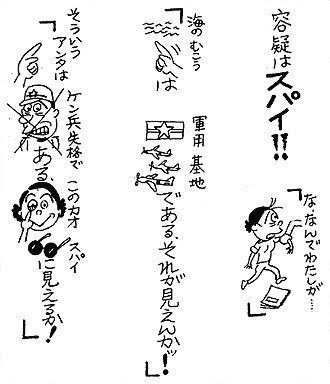 容疑はスパイ!!
「な、なんでわたしが…」
「海のむこうは 軍用基地である、それが見えんかッ!」
「そういうアンタは ケン兵失格である、このカオ スパイに見えるか!」